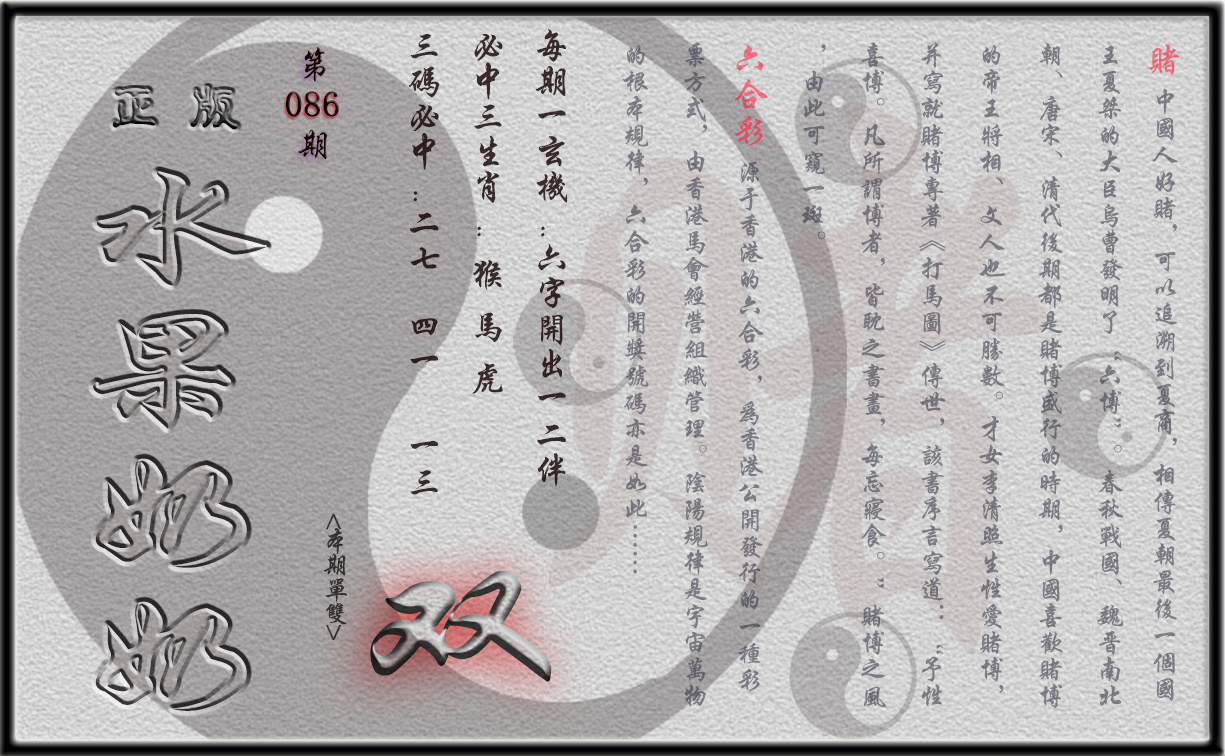 賭 中國人好賭，可以追溯到夏商，相傳夏朝最後一個國
王夏桀的大臣烏曹發明了“六博”。春秋戰國、魏晋南北
朝、唐宋、清代後期都是賭博盛行的時期，中國喜歡賭博
的帝王將相、文人也不可勝數。才女李清照生性愛賭博，
并寫就賭博專著《打馬圖》傳世，該書序言寫道：“予性
喜博。凡所謂博者，皆耽之書晝，每忘寢食。”賭博之風
，由此可窺一斑。
六合彩 源于香港的六合彩，爲香港公開發行的一種彩
票方式，由香港馬會經營組織管理。陰陽規律是宇宙萬物
的根本規律，六合彩的開獎號碼亦是如此……
每期一玄機：六字開出一二伴
必中三生肖：猴 馬 虎
三碼必中：二七 四一 一三
<本期單雙>
双
第
086
期
正版
水果奶奶